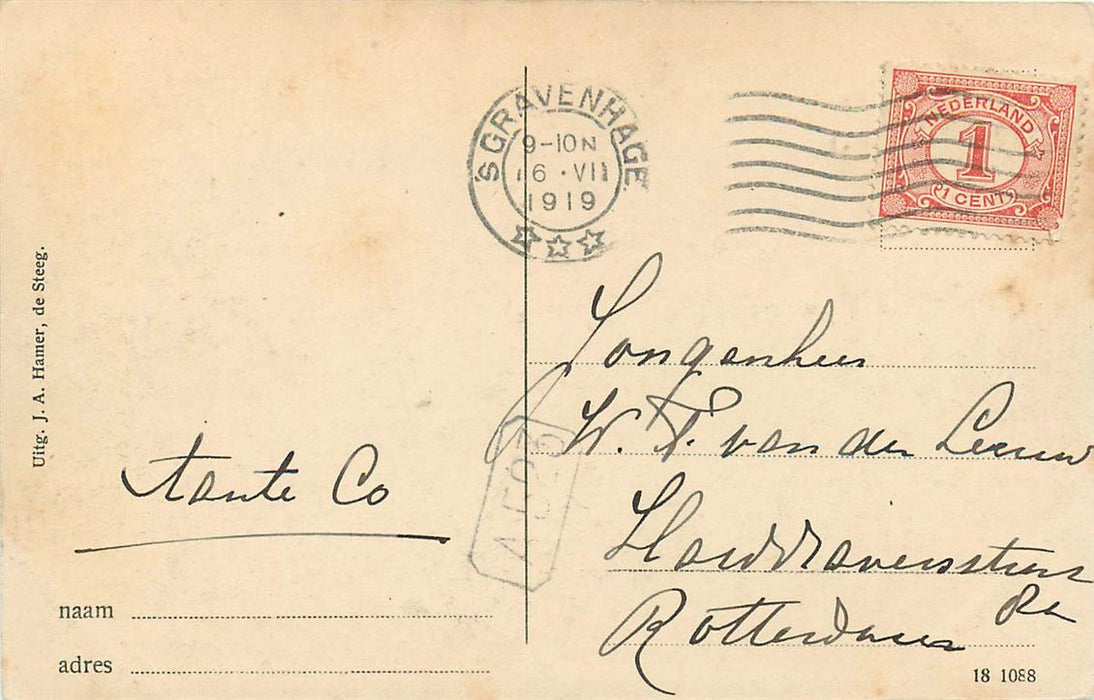 Uitg. J. A. Hamer, de Steeg.
tante Co
naam
adres
'SGRAVENHAGE
9-10N
16 · VII
1919
NEDERLAND
1
1 CENT
Jongenheer
W. F. van der Leeuw
Rotterdam
18 1088